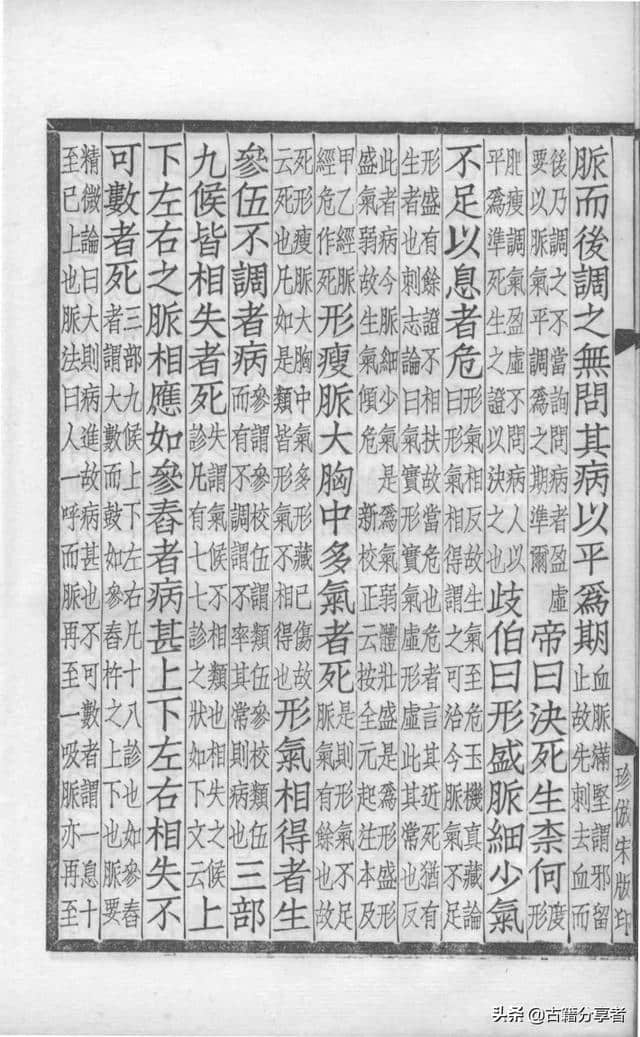 珍倣宋版印
脈而後調之無問其病以平為期
血脈滿堅謂邪留
止故先刺去血而
後乃調之不當詢問病者盈虛
要以脈氣平調為之期準爾
帝曰決死生柰何
度
形
肥瘦調氣盈虛不問病人以
平為準死生之證以決之也
岐伯曰形盛脈細少氣
不足以息者危
形氣相反故生氣至危玉機真藏論
曰形氣相得謂之可治今脈氣不足
形盛有餘證不相扶故當危也危者言其近死猶有
生者也刺志論曰氣實形實氣虛形虛此其常也反
此者病今脈細少氣是為氣弱體壯盛是為形盛形
盛氣弱故生氣傾危 新校正云按全元起注本及
甲乙經脈
經危作死
形瘦脈大胸中多氣者死
是則形氣不足
脈氣有餘也故
死形瘦脈大胸中氣多形藏已傷故
云死也凡如是類皆形氣不相得也
形氣相得者生
參伍不調者病
參謂參校伍謂類伍參校類伍
而有不調謂不率其常則病也
三部
九候皆相失者死
失謂氣候不相類也相失之候
診凡有七七診之狀如下文云
上
下左右之脈相應如參舂者病甚上下左右相失不
可數者死
三部九候上下左右凡十八診也如參舂
者謂大數而鼓如參舂杵之上下也脈要
精微論曰大則病進故病甚也不可數者謂一息十
至已上也脈法曰人一呼而脈再至一吸脈亦再至
头条 @古籍分享者